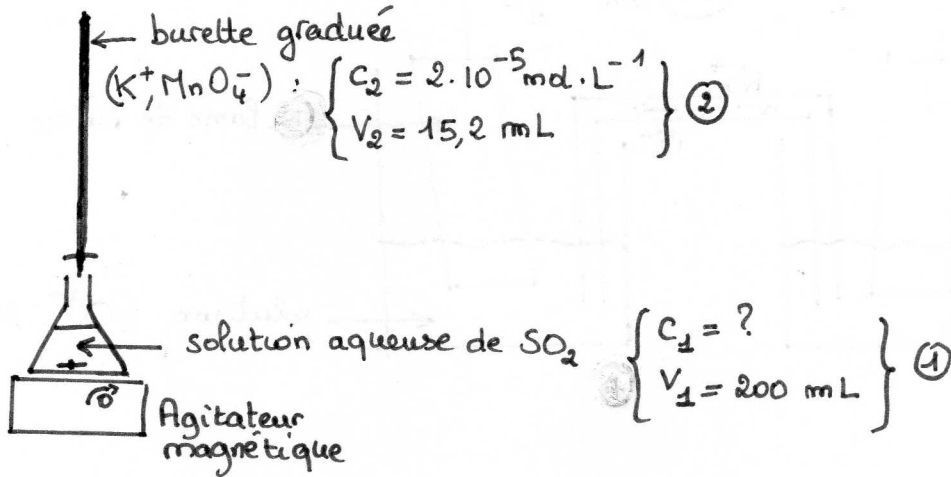 burette graduée
(K⁺, MnO₄⁻) : { C₂ = 2·10⁻⁵ mol·L⁻¹
V₂ = 15,2 mL } ②
solution aqueuse de SO₂ { C₁ = ?
V₁ = 200 mL } ①
Agitateur
magnétique